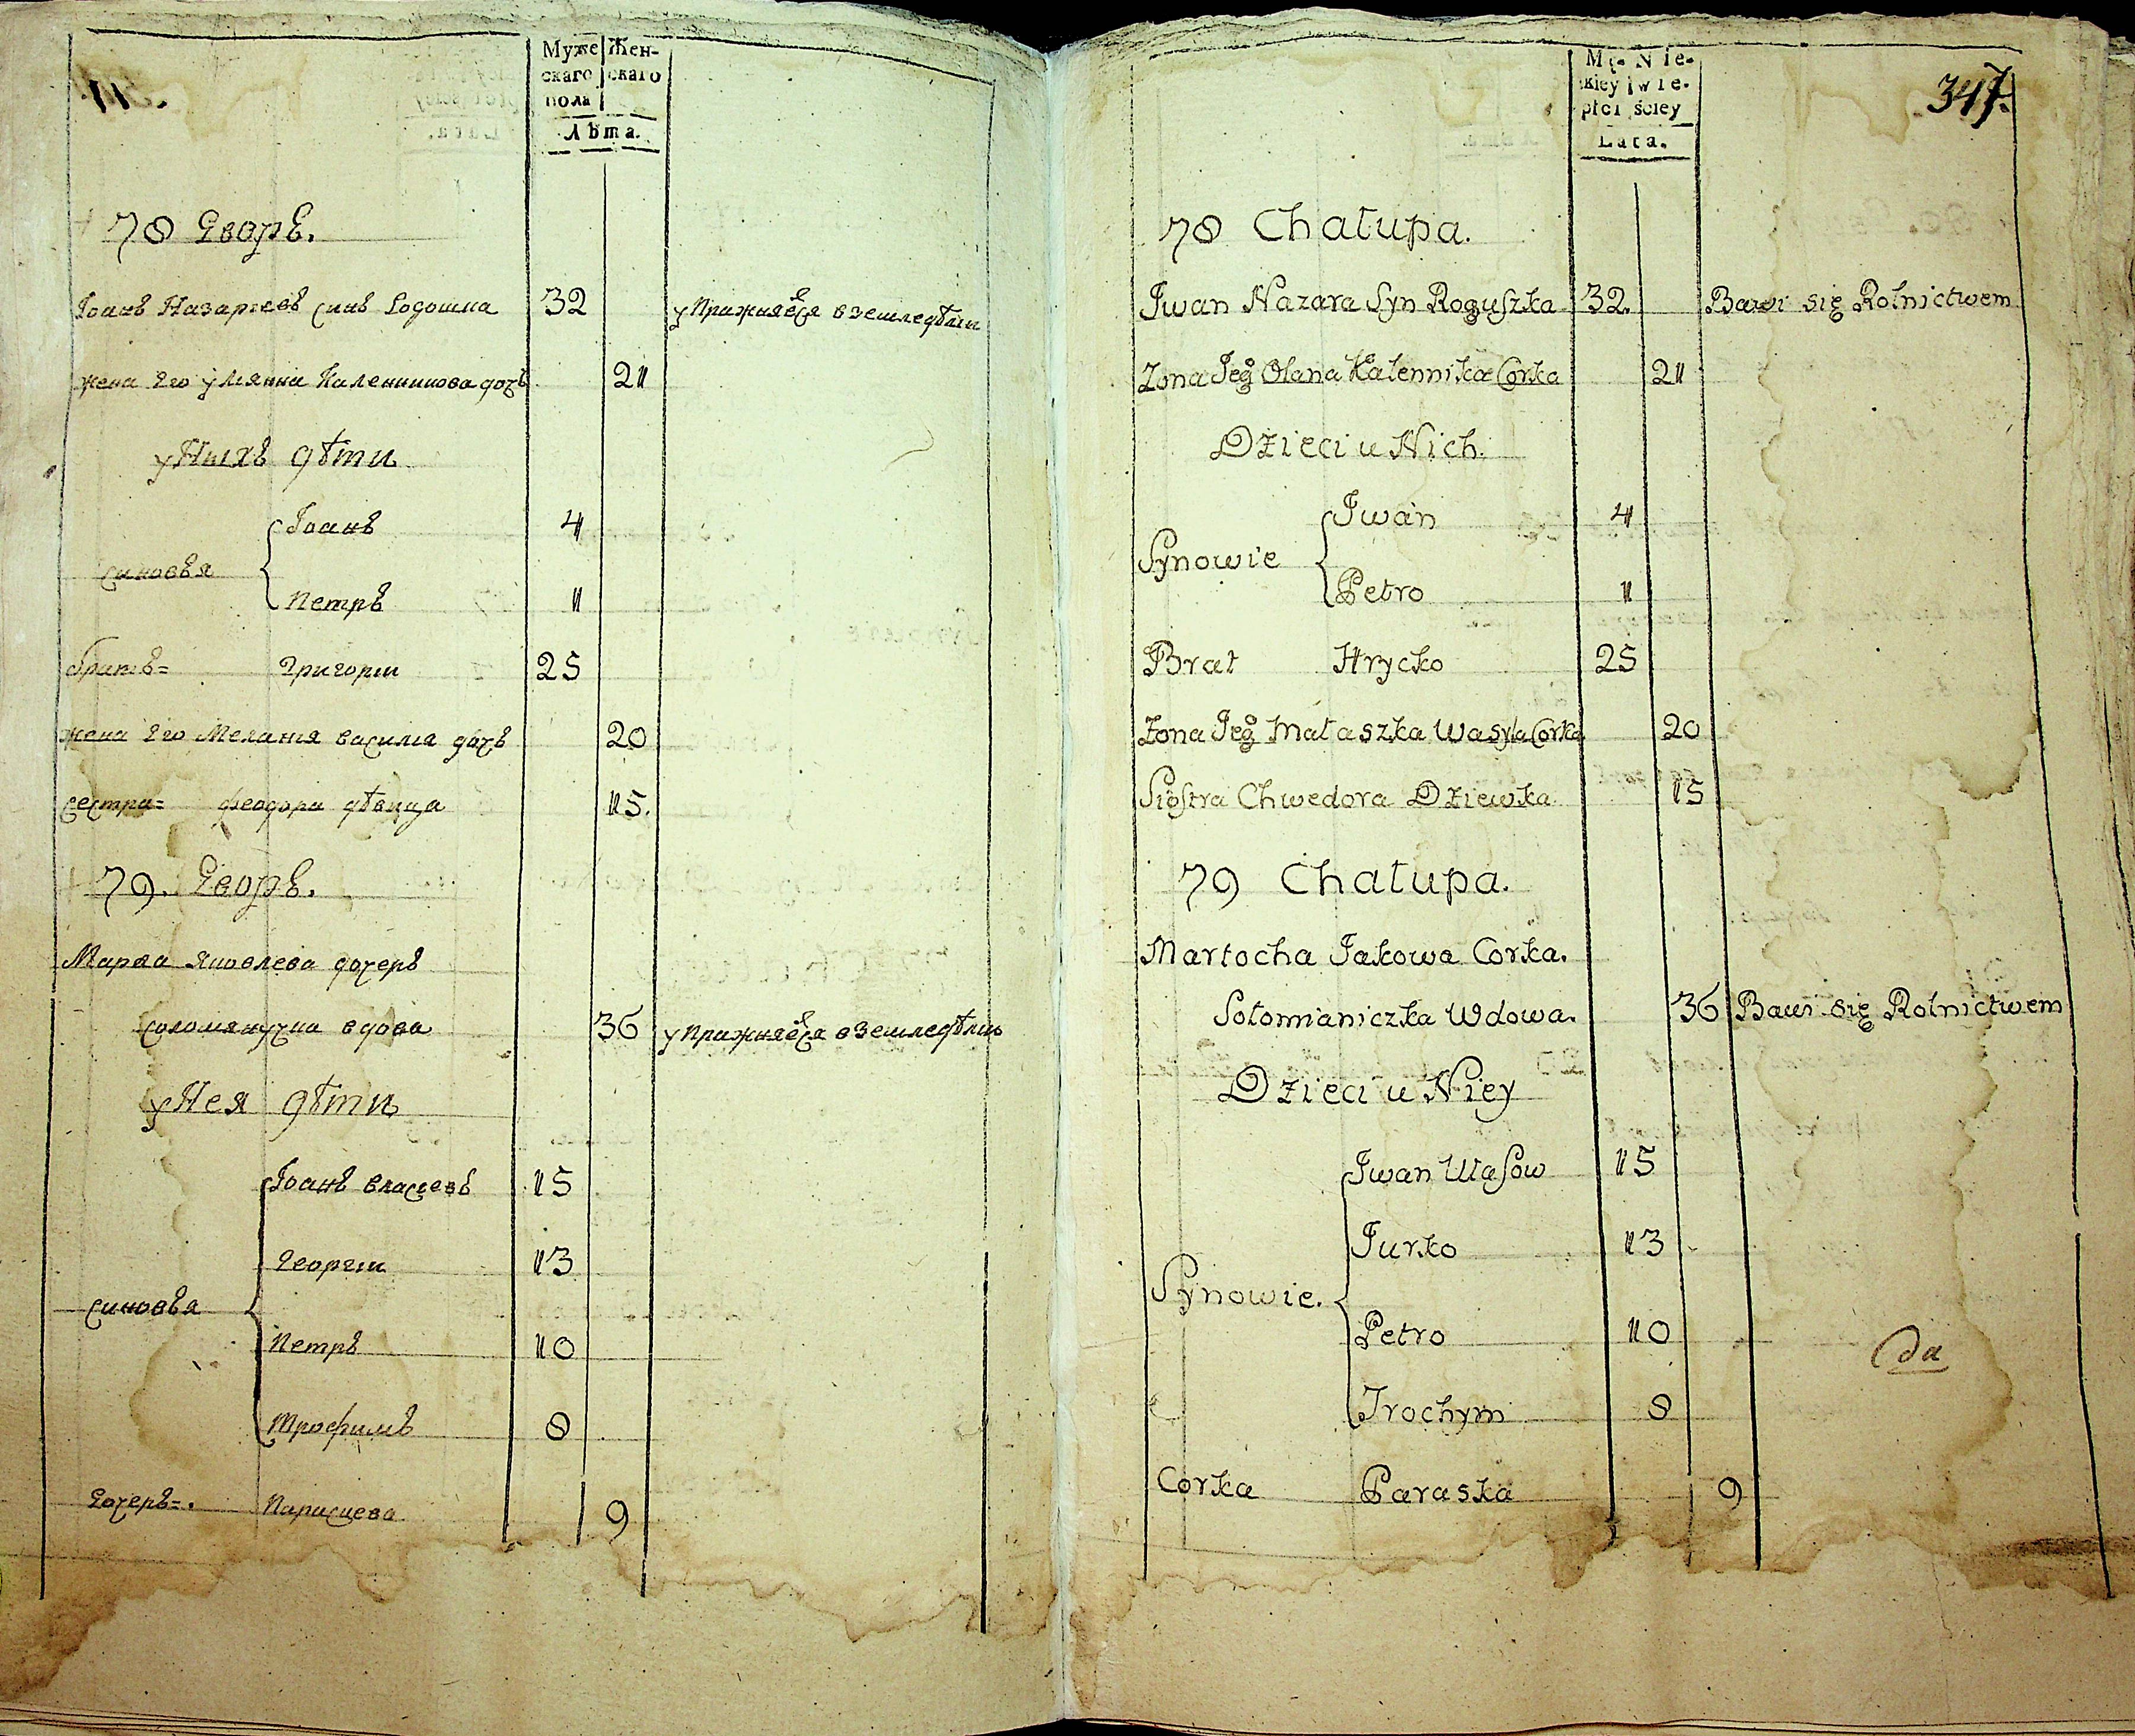 Муже Жен-
скаго скаго
пола
Лѣта.
78 Дворъ.
Іоанъ Назариевъ синъ 32 упражняéся в земледѣлии
жена Его улиянна Каленникова дочь 21
у Нихъ дѣти
Іоанъ 4
синовья
Петръ 1
братъ= Григории 25
жена Его Мелания василия дочь 20
сестра= феодора дѣвица 15.
79. Дворъ.
Марѳа Яковлева дочеръ
соломяничка вдова 36 упражняéся в земледѣлии
у Нея дѣти
Іоанъ власиевъ 15
Георгии 13
синовья
Петръ 10
Трофимъ 8
Дочеръ=. Параскева 9
347.
Mę- Nie-
skiey wie-
płci ściey
Lata.
78 Chałupa.
Iwan Nazara Syn Roguszka 32. Bawi się Rolnictwem
Zona Jego Olana Kalennika Corka 21
Dzieci u Nich.
Iwan 4
Synowie
Petro 1
Brat Hrycko 25
Zona Jego Małaszka Wasyla Corka 20
Siostra Chwedora Dziewka 15
79 Chałupa.
Martocha Jakowa Corka.
Sołomianiczka Wdowa. 36 Bawi się Rolnictwem
Dzieci u Niey
Iwan Ułasow 15
Jurko 13
Synowie.
Petro 10
да
Trochym 8
Corka Paraska 9